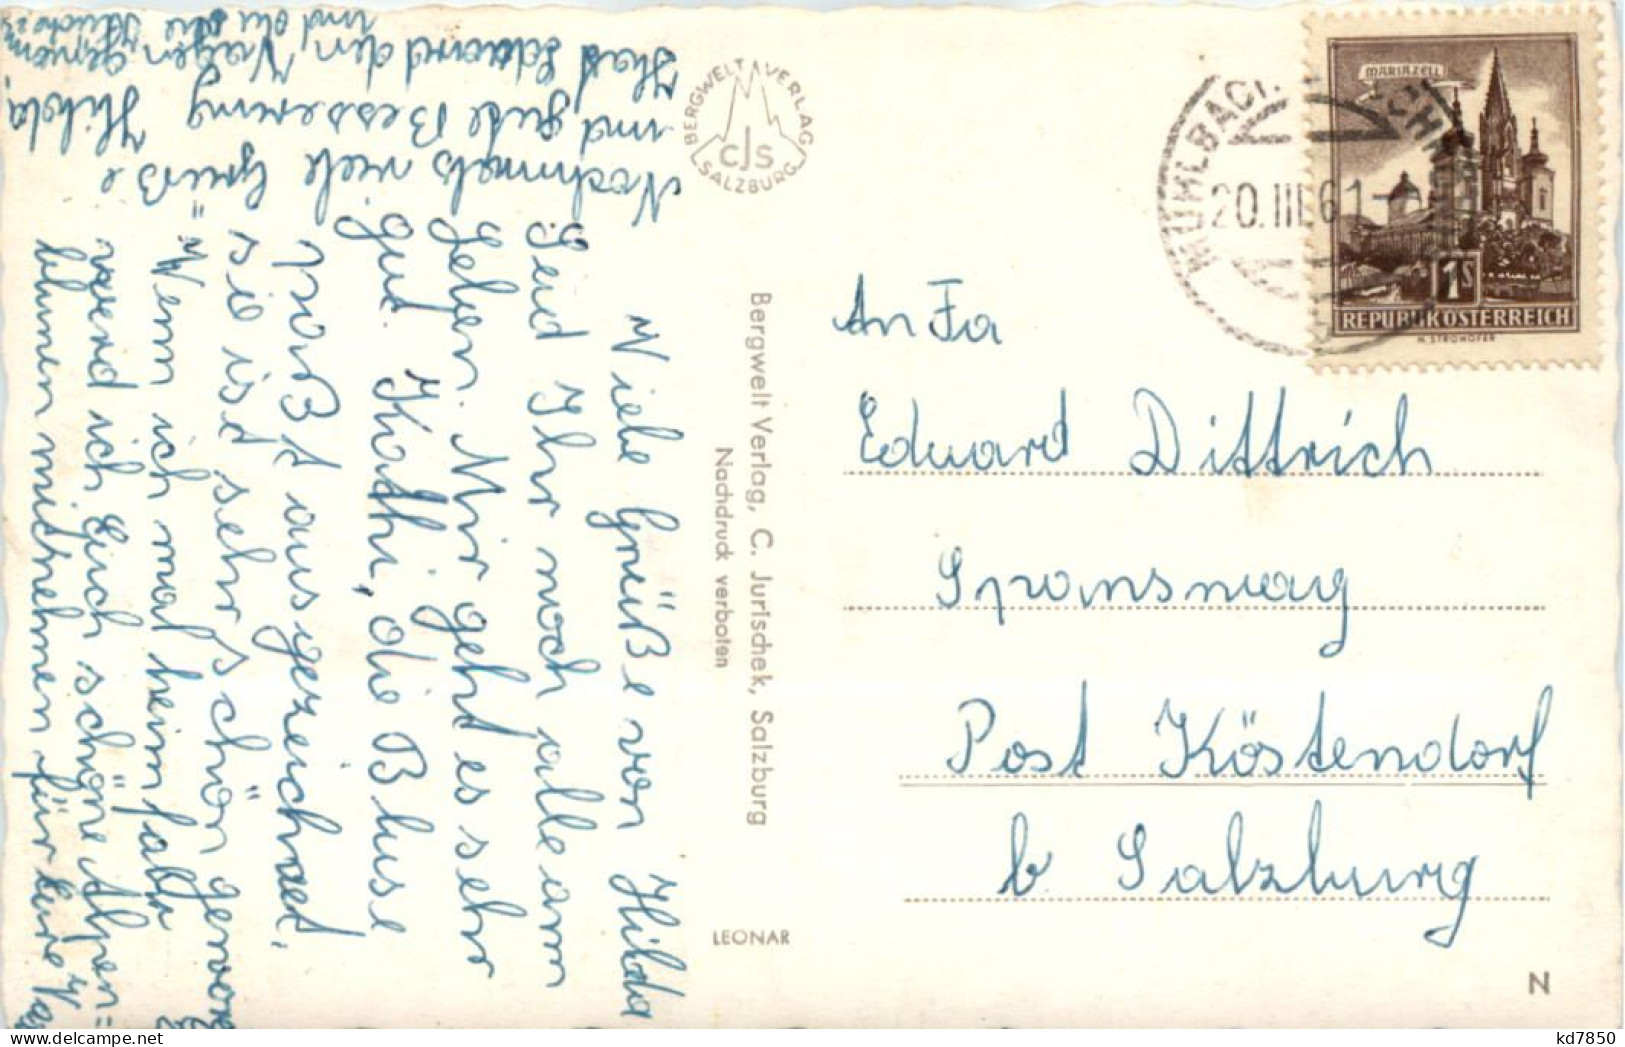 Viele Grüße von Hilda
Seid Ihr noch alle am
Leben. Mir geht es sehr
gut. Kathi, die Bluse
paßt ausgezeichnet,
sie ist sehr schön
Wenn ich mal heimfahr
werd ich Euch schöne Alpen=
blumen mitnehmen für Eure
Nochmals viele Grüße
und gute Besserung Hilda
Hat Eduard den Wagen
und die
BERGWELT VERLAG
CJS
SALZBURG
Bergwelt Verlag, C. Jurischek, Salzburg
Nachdruck verboten
LEONAR
MÜHLBACH
20.III.61
MARIAZELL
1S
REPUBLIK ÖSTERREICH
H. STROHOFER
An Fa
Eduard Dittrich
Spanswag
Post Köstendorf
b. Salzburg
N
kd7850